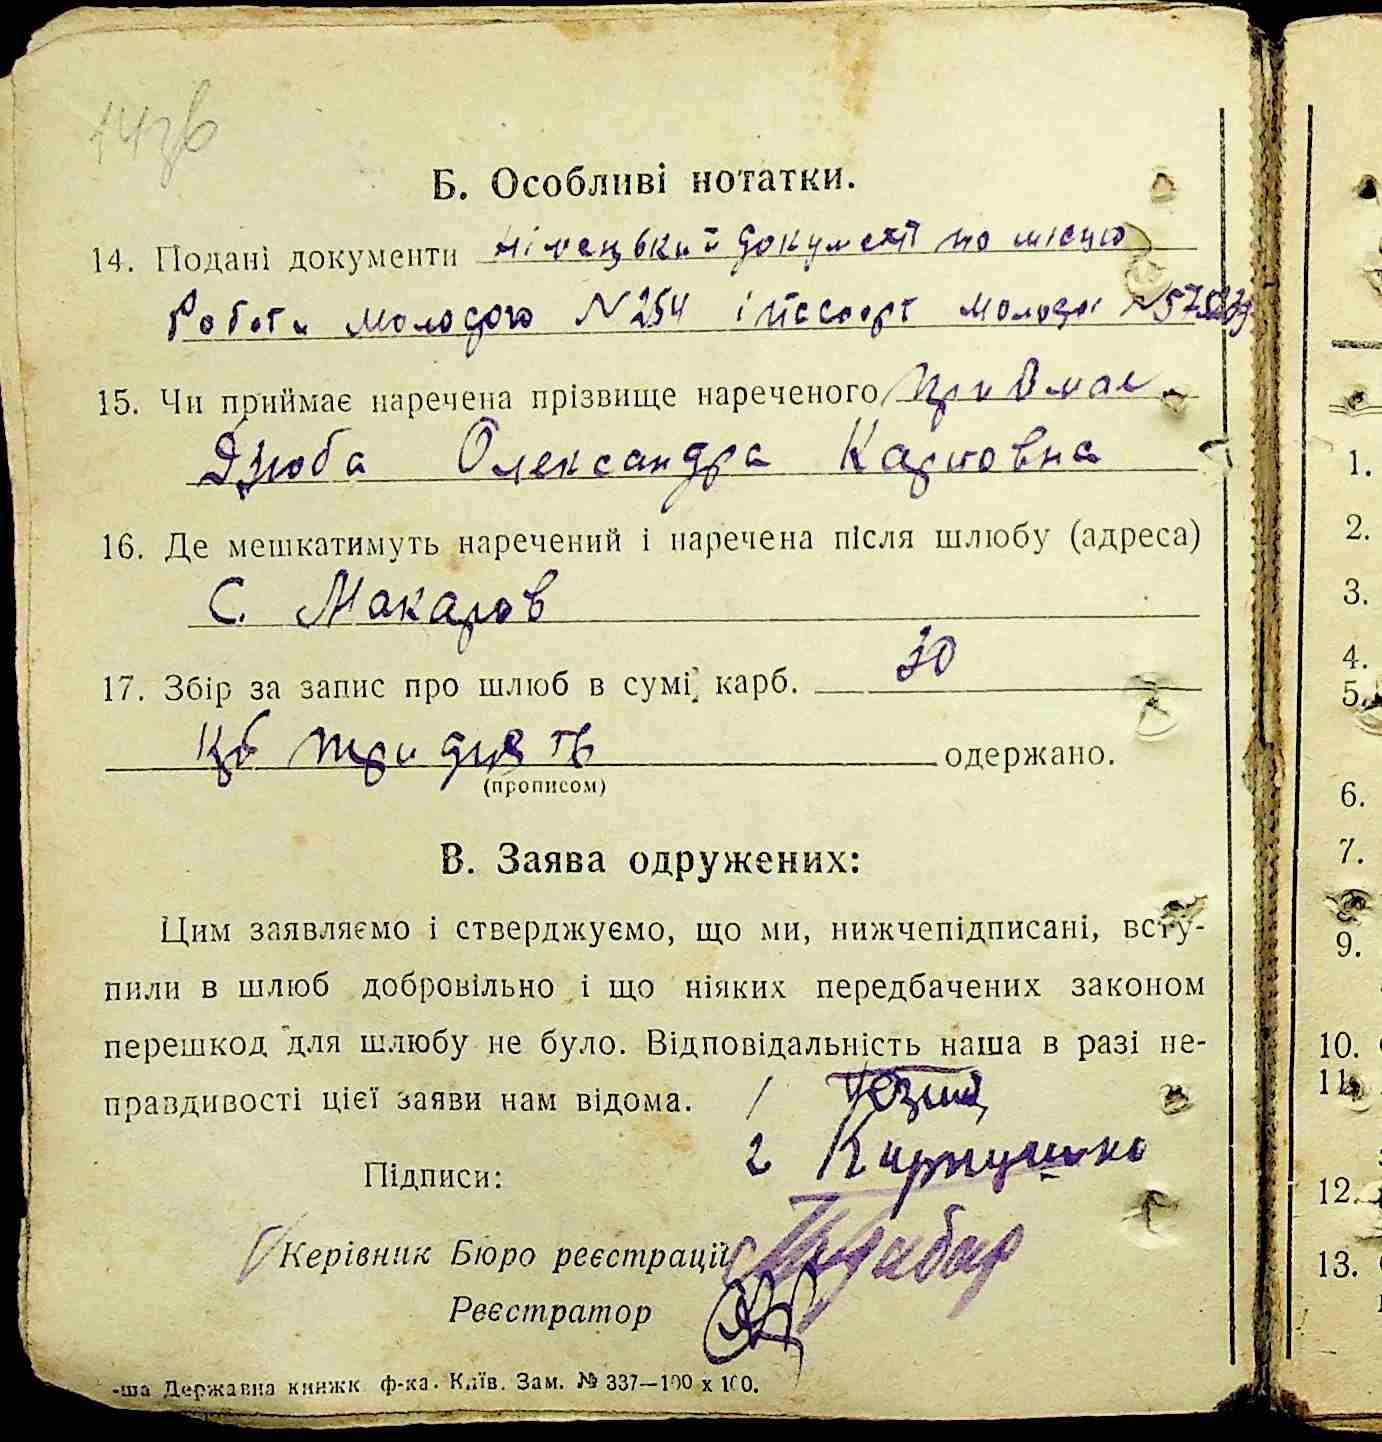 14зв
Б. Особливі нотатки.
14. Подані документи німецький документ по місцю
роботи молодого N 254 і паспорт молодої N
15. Чи приймає наречена прізвище нареченого приймає
Дзюба Олександра Карповна
16. Де мешкатимуть наречений і наречена після шлюбу (адреса)
С. Макаров
17. Збір за запис про шлюб в сумі карб. 30
крб тридцять одержано.
(прописом)
В. Заява одружених:
Цим заявляємо і стверджуємо, що ми, нижчепідписані, всту-
пили в шлюб добровільно і що ніяких передбачених законом
перешкод для шлюбу не було. Відповідальність наша в разі не-
правдивості цієї заяви нам відома. 1
2
Підписи:
Керівник Бюро реєстрації
Реєстратор
-ша Державна книжк ф-ка. Київ. Зам. № 337—100 х 100.
1.
2.
3.
4.
5.
6.
7.
9.
10.
11.
12.
13.